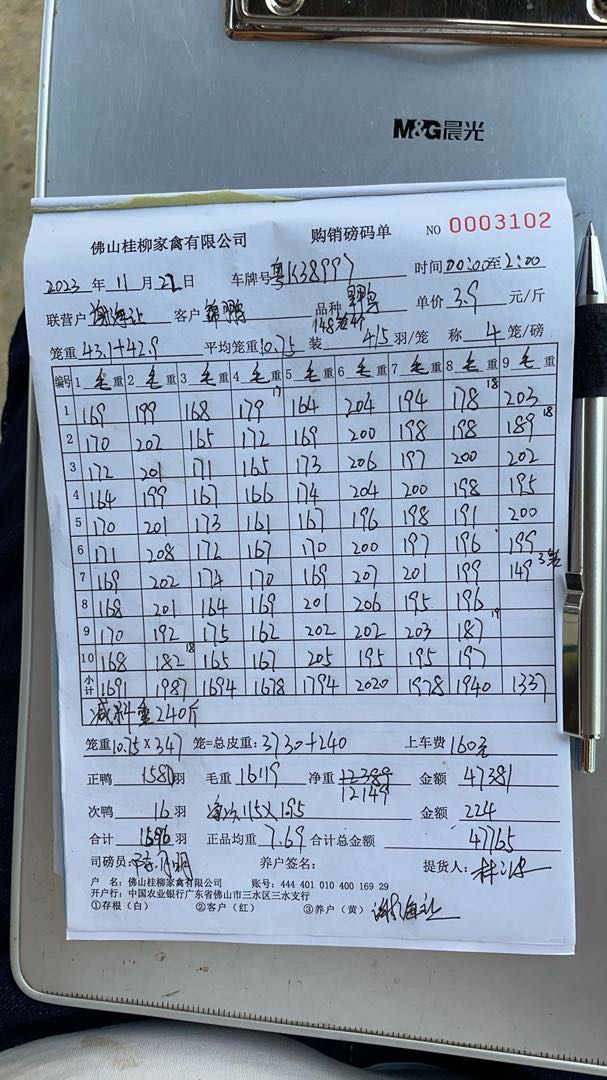 M&G晨光
佛山桂柳家禽有限公司 购销磅码单 NO 0003102
2023 年 11 月 22 日 车牌号 粤K38997 时间 00:00至2:00
联营户 客户 锦鹏 品种 单价 3.9 元/斤
笼重 43.1+42.9 平均笼重 10.75 装 4/5 羽/笼 称 4 笼/磅
编号 1 毛 重 2 毛 重 3 毛 重 4 毛 重 5 毛 重 6 毛 重 7 毛 重 8 毛 重 9 毛 重
1 169 199 168 179 17 164 204 194 178 18 203
2 170 202 165 172 169 200 198 198 189 18
3 172 201 171 165 173 206 197 200 202
4 164 199 167 166 174 204 200 198 195
5 170 201 173 161 167 196 198 191 200
6 171 208 172 167 170 200 197 196 199
7 169 202 174 170 169 207 201 199 149 3笼
8 168 201 164 169 201 206 195 196
9 170 192 175 162 202 202 203 187
10 168 182 18 165 167 205 195 195 19 197
小计 1691 1987 1694 1678 1794 2020 1978 1940 1337
减料重240斤
笼重 10.75×347 笼=总皮重: 3730+240 上车费 160元
正鸭 羽 毛重 16119 净重 12389 金额 47381
12149
次鸭 16 羽 115×1.95 金额 224
合计 1596 羽 正品均重 7.69 合计总金额 47765
司磅员: 养户签名: 提货人:
户 名: 佛山桂柳家禽有限公司 账号: 444 401 010 400 169 29
开户行: 中国农业银行广东省佛山市三水区三水支行
①存根（白） ②客户（红） ③养户（黄）